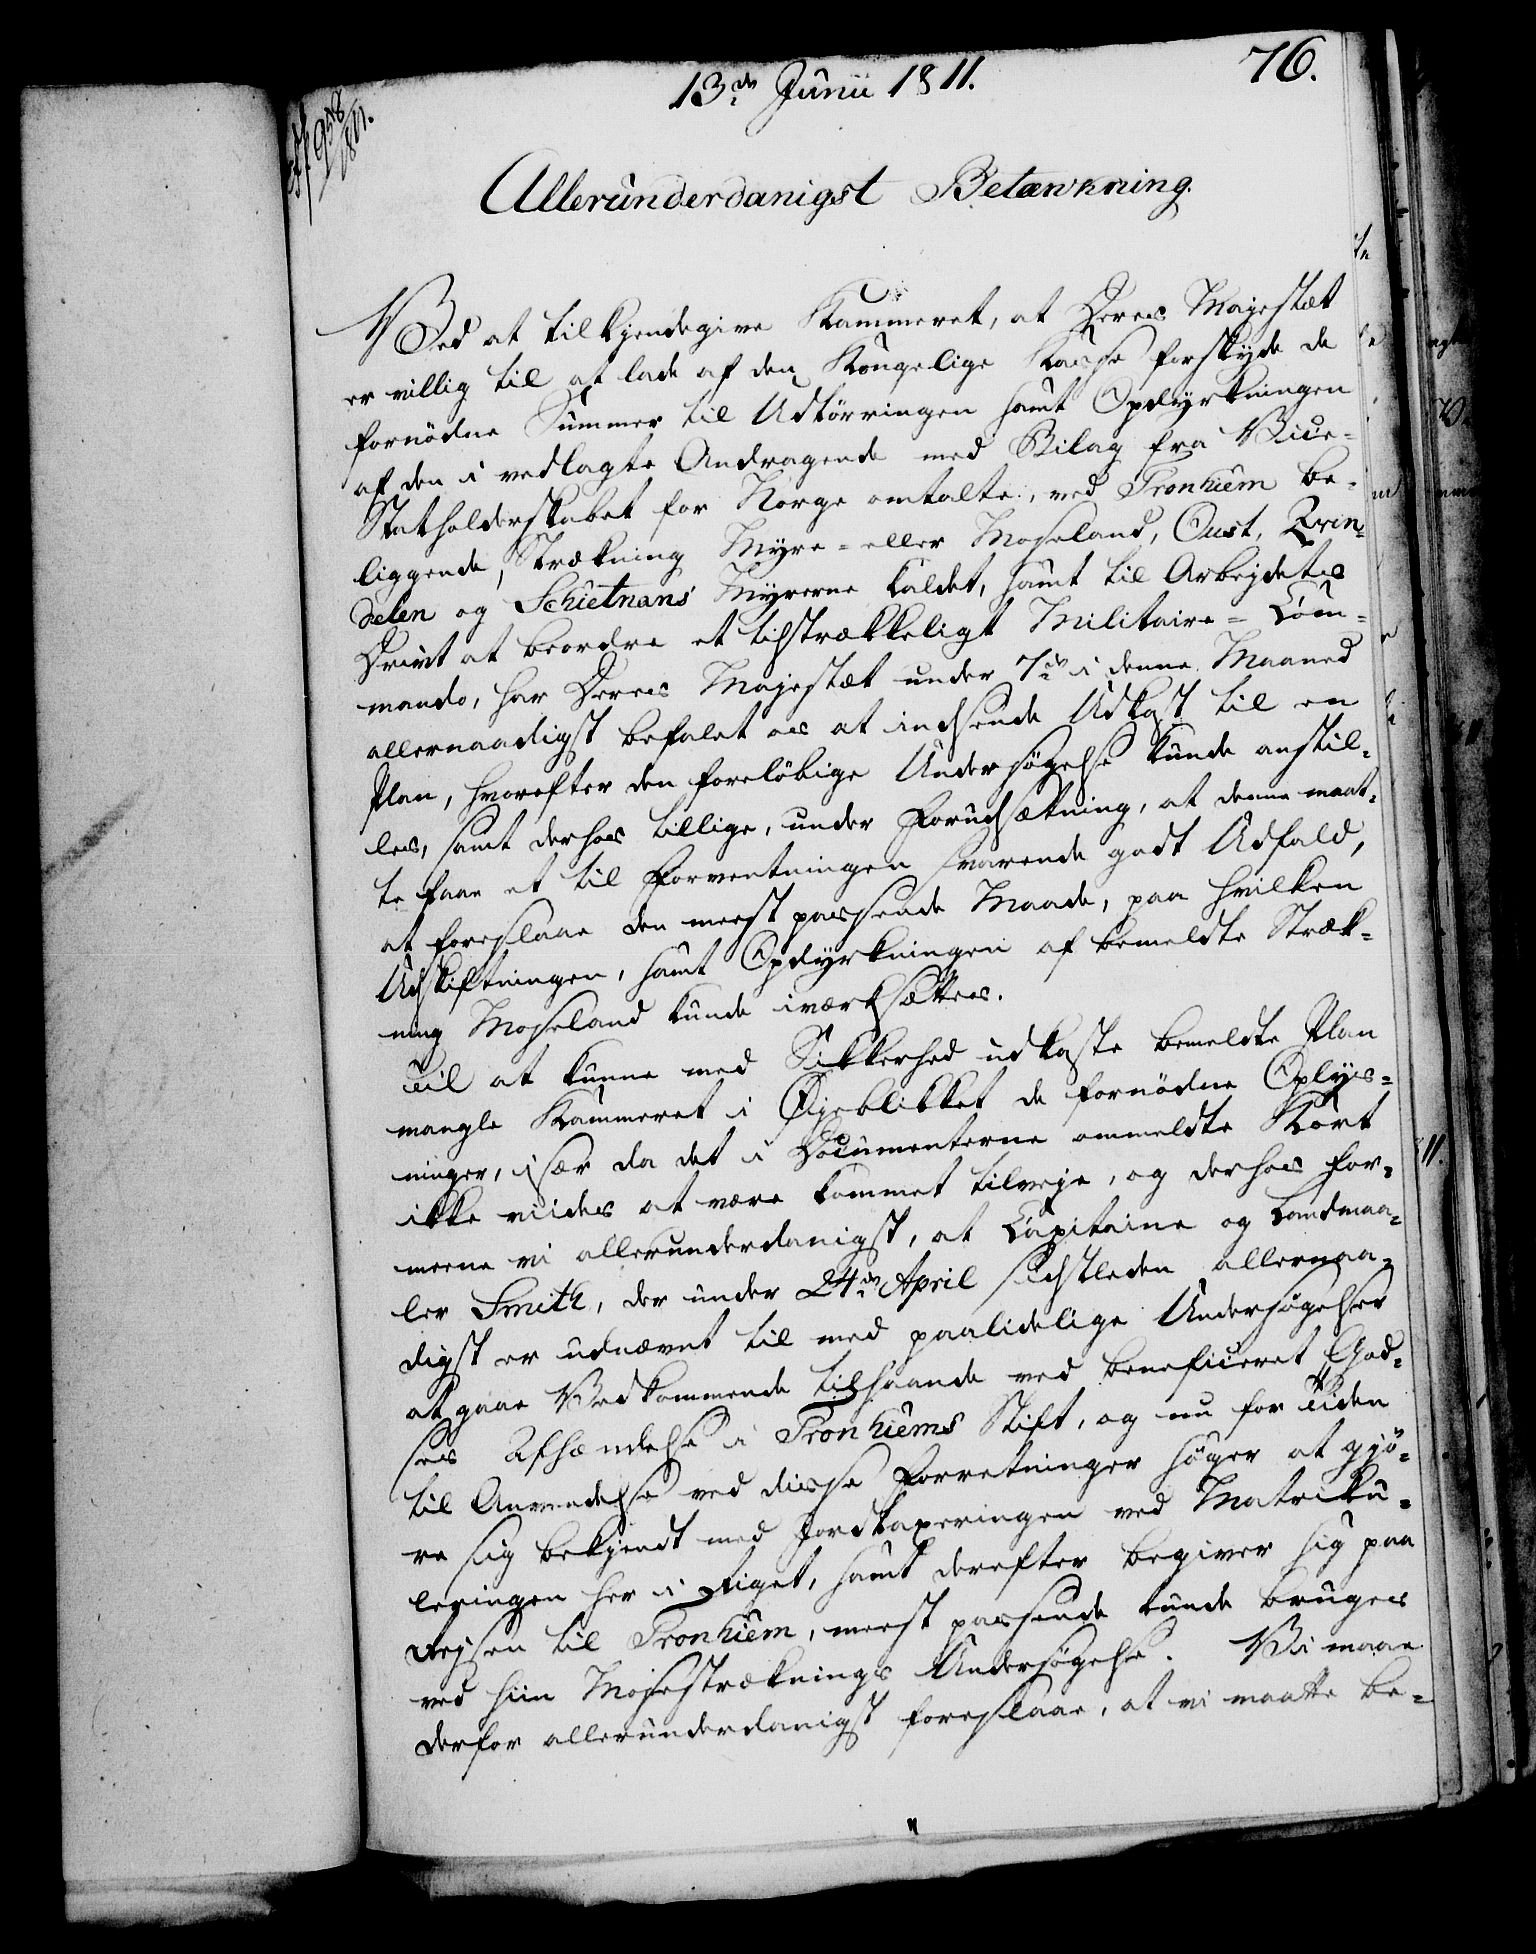 13de Junii 1811.
76.
958/1811.
Allerunderdanigst Betænkning.
Ved at tilkjendegive Kammeret, at Deres Majestæt
er villig til at lade af den Kongelige Kasse forskyde de
fornödne Summer til Udtörringen samt Opdyrkningen
af den i vedlagte Andragende med Bilag fra Vice-
Statholderskabet for Norge omtalte, ved Tronhiem be-
liggende, Strækning Myre- eller Moseland, Oust, Qvin-
delen og Schietnans Myrerne kaldet, samt til Arbejdets
Drivt at beordre et tilstrækkeligt Militaire-Com-
mando, har Deres Majestæt under 7de i denne Maaned
allernaadigst befalet os at indsende Udkast til en
Plan, hvorefter den foreløbige Undersøgelse kunde anstil-
les, samt derhos tillige, under Forudsætning, at denne maat-
te faae et til Forventningen svarende godt Udfald,
at foreslaae den meest passende Maade, paa hvilken
Udskiftningen, samt Opdyrkningen af bemeldte Stræk-
ning Moseland kunde iværksættes.
Til at kunne med Sikkerhed udkaste bemeldte Plan
mangle Kammeret i Øjeblikket de fornödne Oplys-
ninger, især da det i Documenterne ommeldte Kort
ikke viides at være kommet tilveje, og derhos for-
meene vi allerunderdanigst, at Capitaine og Landmaa-
ler Smith, der under 24de April sidstleden allernaa-
digst er udnævnt til med paalidelige Undersøgelser
at gaae Vedkommende tilhaande ved beneficeret God-
ses Afhændelse i Tronhiems Stift, og nu for Tiden
til Anvendelse ved disse Forretninger søger at gjö-
re sig bekjendt med Jordtaxeringen ved Matriku-
leringen her i Riget, samt derefter begiver sig paa
Rejsen til Tronhiem, meest passende kunde bruges
ved hiin Mosestræknings Undersøgelse. Vi maae
derfor allerunderdanigst foreslaae, at vi maatte be-